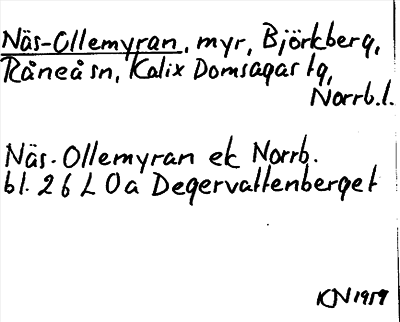 Näs-Ollemyran, myr, Björkberg,
Råneå sn, Kalix Domsagas tg,
Norrb.l.
Näs-Ollemyran ek Norrb.
bl. 26 L 0a Degervattenberget
KN 1959